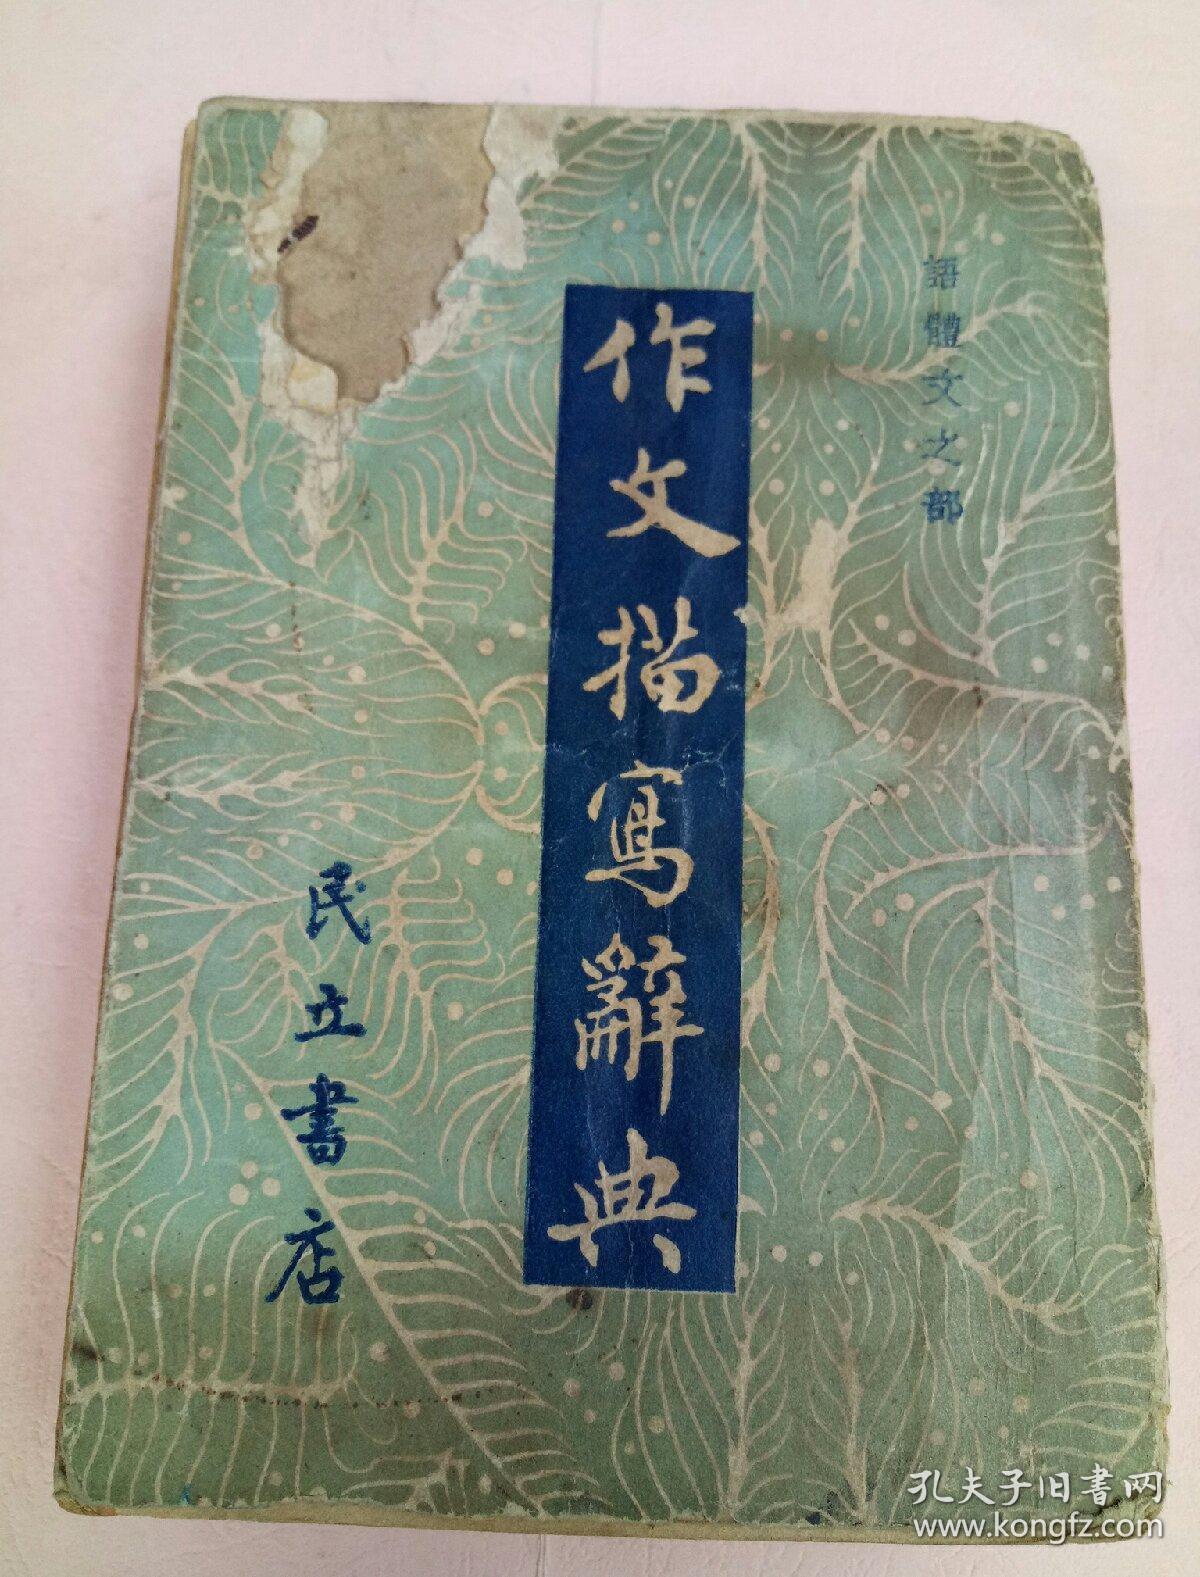 語體文之部
作文描寫辭典
民立書店
孔夫子旧書网
www.kongfz.com